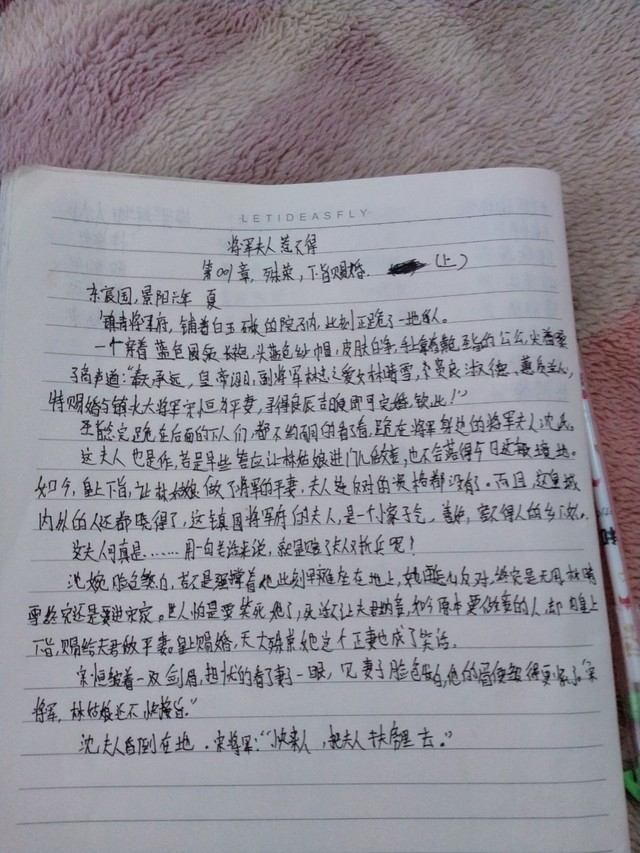 LETIDEASFLY
将军夫人惹不得
第001章,殊荣,下旨赐婚. (上)
东宸国,景阳六年 夏
镇南将军府,铺着白玉砖的院子内,此刻正跪了一地的人。
一个穿着蓝色圆领长袍,头蓝色纱帽,皮肤白净,手上拿着圣旨的公公,尖着嗓
子高声道:"奉天承运,皇帝诏曰,副将军林忠之爱女林晴雪,贤良淑德,蕙质兰心,
特赐婚与镇北大将军宋恒为平妻,寻得良辰吉日即可完婚,钦此!"
圣旨念完跪在后面的下人们,都不约而同的看着,跪在将军身边的将军夫人沈氏。
这夫人也是作,若是早些答应让林姑娘进门做妾,也不会落得今日这般境地。
如今,皇上下旨,让林姑娘做了将军的平妻,夫人是反对的资格都没有了。而且这皇城
内外的人还都晓得了,这镇国将军府的夫人,是一个小家子气,善妒,容不得人的乡下女。
这夫人可真是……用一句老话来说,就是赔了夫人又折兵呢!
沈婉脸色煞白,若不是强撑着他此刻早瘫坐在地上,她再怎么反对,终究是无用,林晴
雪终究还是要进宋家。世人怕是要笑死她了,反对了让夫君纳妾,如今原本要做妾的人,却因皇上
下旨,赐给夫君做平妻。皇上赐婚,天大殊荣她这个正妻也成了笑话。
宋恒皱着一双剑眉,担忧的看了妻子一眼,见妻子脸色煞白,他的眉便皱得更深了。"宋
将军,林姑娘还不快接旨。"
沈夫人自倒在地.宋将军:"快来人,把夫人扶房里去。"